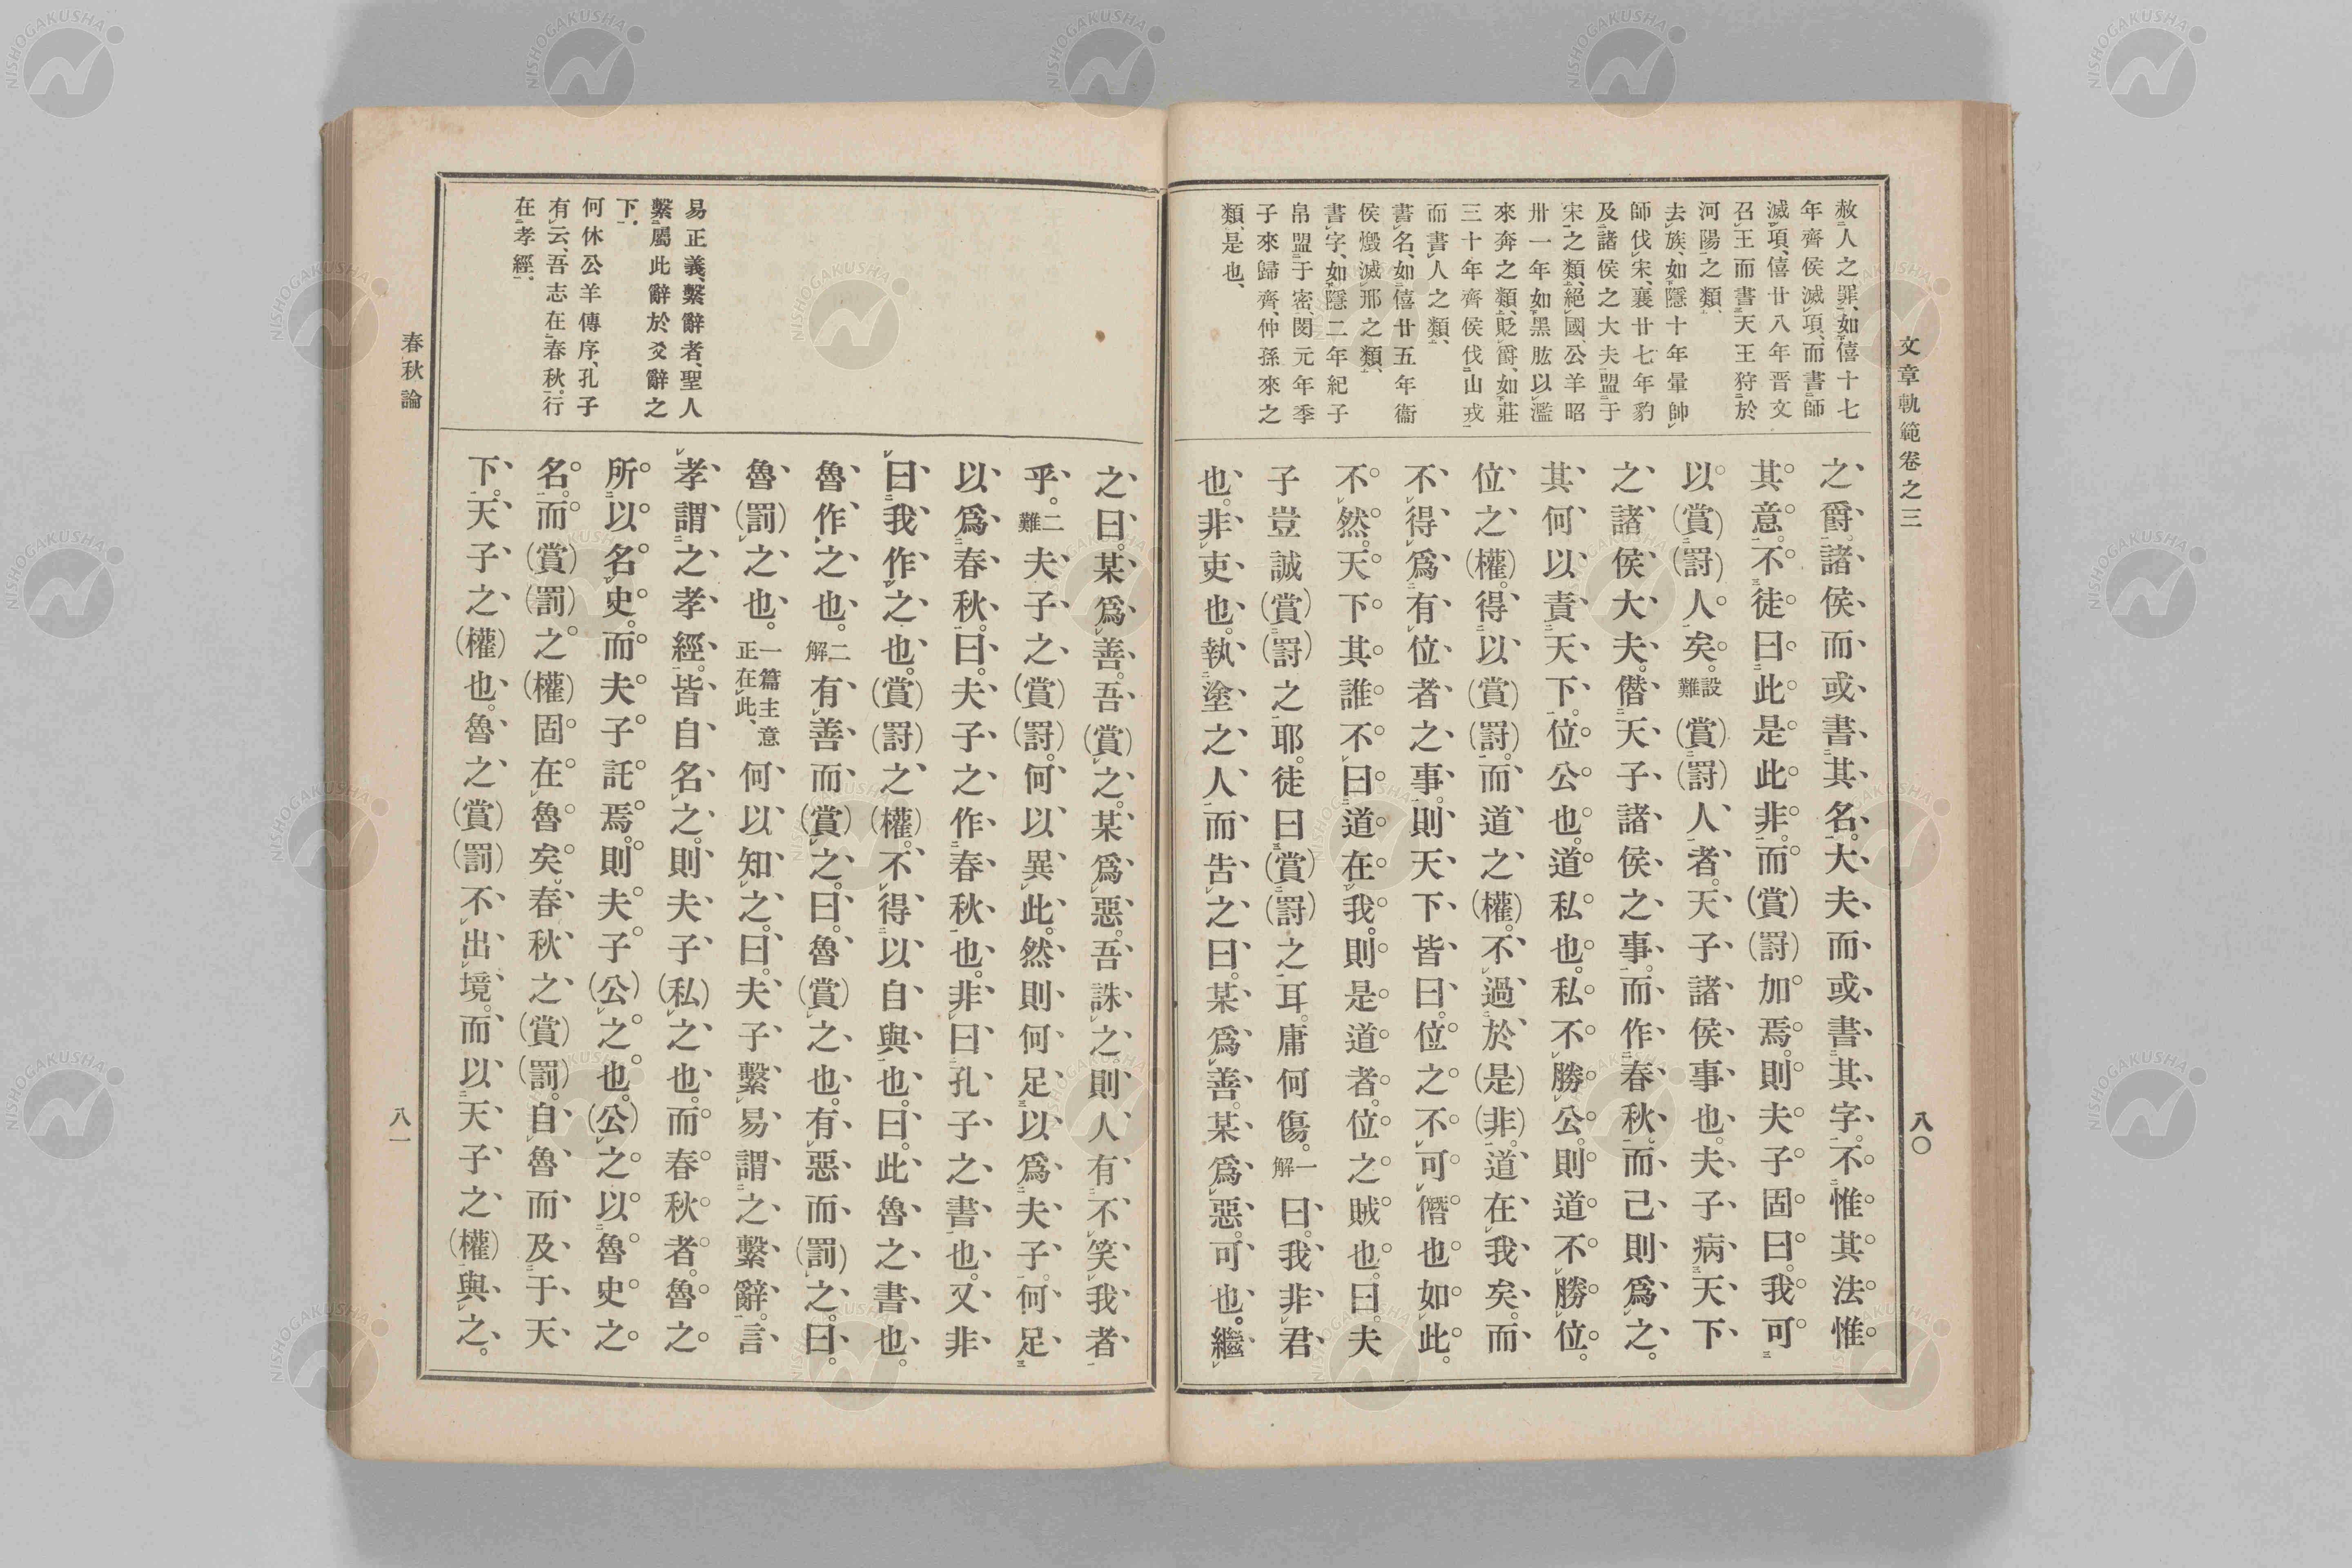 文章軌範卷之三
八〇
赦人之罪、如僖十七
年齊侯滅項、而書師
滅項、僖廿八年晋文
召王而書天王狩於
河陽之類、
去族、如隱十年暈帥
師伐宋、襄廿七年豹
及諸侯之大夫盟于
宋之類、絕國、公羊昭
卅一年如黑肱以濫
來奔之類、貶爵、如莊
三十年齊侯伐山戎
而書人之類、
書名、如僖廿五年衞
侯燬滅邢之類、
書字、如隱二年紀子
帛盟于密、閔元年季
子來歸齊、仲孫來之
類、是也、
之爵。諸侯而或書其名。大夫而或書其字。不惟其法惟
其意。不徒曰此是此非。而(賞)(罸)加焉。則夫子固曰。我可
以(賞)(罸)人矣。設難(賞)(罸)人者。天子諸侯事也。夫子病天下
之諸侯大夫。僭天子諸侯之事。而作春秋。而己則爲之。
其何以責天下。位公也。道私也。私不勝公。則道不勝位。
位之(權)。得以(賞)(罸)。而道之(權)。不過於(是)(非)。道在我矣。而
不得爲有位者之事。則天下皆曰。位之不可僭也如此。
不然。天下其誰不曰道在我。則是道者。位之賊也。曰。夫
子豈誠(賞)(罸)之耶。徒曰(賞)(罸)之耳。庸何傷。一解曰。我非君
也。非吏也。執塗之人而告之曰。某爲善。某爲惡。可也。繼
之曰。某爲善。吾(賞)之。某爲惡。吾誅之則人有不笑我者
乎。二難夫子之(賞)(罸)。何以異此。然則何足以爲夫子。何足
以爲春秋。曰。夫子之作春秋也。非曰孔子之書也。又非
曰我作之也。(賞)(罸)之(權)。不得以自與也。曰。此魯之書也。
魯作之也。二解有善而(賞)之。曰。魯(賞)之也。有惡而(罰)之。曰。
魯(罰)之也。一篇主意正在此、何以知之。曰。夫子繫易謂之繫辭。言
孝謂之孝經。皆自名之。則夫子(私)之也。而春秋者。魯之
所以名史。而夫子託焉。則夫子(公)之也。(公)之以魯史之
名。而(賞)(罰)之(權)固在魯矣。春秋之(賞)(罰)。自魯而及于天
下。天子之(權)也。魯之(賞)(罰)不出境。而以天子之(權)與之。
易正義、繫辭者、聖人
繫屬此辭於爻辭之
下.
何休公羊傳序、孔子
有云、吾志在春秋。行
在孝經.
春秋論
八一
NISHOGAKUSHA